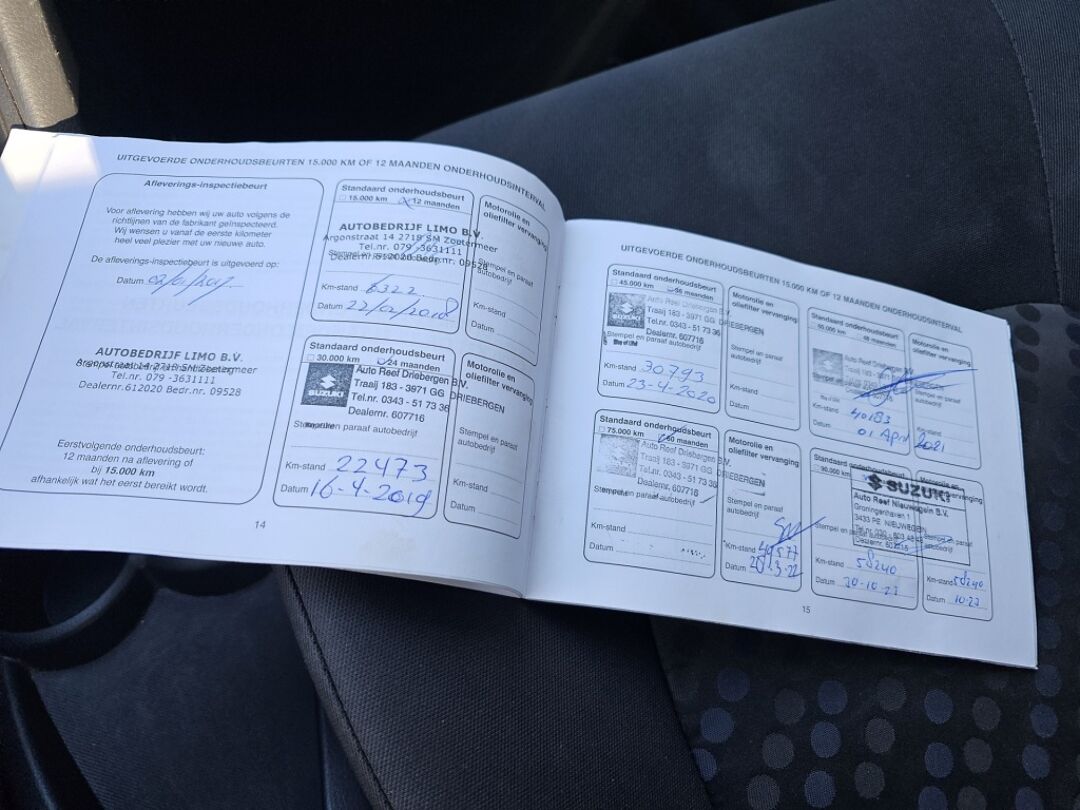 UITGEVOERDE ONDERHOUDSBEURTEN 15.000 KM OF 12 MAANDEN ONDERHOUDSINTERVAL
Afleverings-inspectiebeurt
Voor aflevering hebben wij uw auto volgens de
richtlijnen van de fabrikant geïnspecteerd.
Wij wensen u vanaf de eerste kilometer
heel veel plezier met uw nieuwe auto.
De afleverings-inspectiebeurt is uitgevoerd op:
Datum
AUTOBEDRIJF LIMO B.V.
Tel.nr. 079 -3631111
Dealernr.612020 Bedr.nr. 09528
Eerstvolgende onderhoudsbeurt:
12 maanden na aflevering of
bij 15.000 km
afhankelijk wat het eerst bereikt wordt.
Standaard onderhoudsbeurt
15.000 km 12 maanden
AUTOBEDRIJF LIMO B.V.
Argonstraat 14 2718 SM Zoetermeer
Tel.nr. 079 -3631111
Dealernr.612020 Bedr.nr. 09528
Km-stand 6322
Datum 22/02/2018
Motorolie en
oliefilter vervanging
Stempel en paraaf
autobedrijf
Km-stand
Datum
Standaard onderhoudsbeurt
30.000 km 24 maanden
SUZUKI
Auto Reef Driebergen B.V.
Traaij 183 - 3971 GG DRIEBERGEN
Tel.nr. 0343 - 51 73 36
Dealernr. 607716
Stempel en paraaf autobedrijf
Km-stand 22473
Datum 16-4-2019
Motorolie en
oliefilter vervanging
Stempel en paraaf
autobedrijf
Km-stand
Datum
14
UITGEVOERDE ONDERHOUDSBEURTEN 15.000 KM OF 12 MAANDEN ONDERHOUDSINTERVAL
Standaard onderhoudsbeurt
45.000 km 36 maanden
SUZUKI
Auto Reef Driebergen B.V.
Traaij 183 - 3971 GG DRIEBERGEN
Tel.nr. 0343 - 51 73 36
Dealernr. 607716
Stempel en paraaf autobedrijf
Km-stand 30.793
Datum 23-4-2020
Motorolie en
oliefilter vervanging
Stempel en paraaf
autobedrijf
Km-stand
Datum
Standaard onderhoudsbeurt
60.000 km 48 maanden
Auto Reef Driebergen
Km-stand 40183
Datum 01 April 2021
Motorolie en
oliefilter vervanging
Standaard onderhoudsbeurt
75.000 km 60 maanden
Auto Reef Driebergen B.V.
Traaij 183 - 3971 GG DRIEBERGEN
Tel.nr. 0343 - 51 73 36
Dealernr. 607716
Stempel en paraaf autobedrijf
Km-stand
Datum
Motorolie en
oliefilter vervanging
Stempel en paraaf
autobedrijf
Km-stand 49577
Datum
Standaard onderhoudsbeurt
90.000 km
SUZUKI
Auto Reef Nieuwegein B.V.
Groningenhaven 1
3433 PE NIEUWEGEIN
Km-stand 58240
Datum
Km-stand 58240
Datum 10-22
15